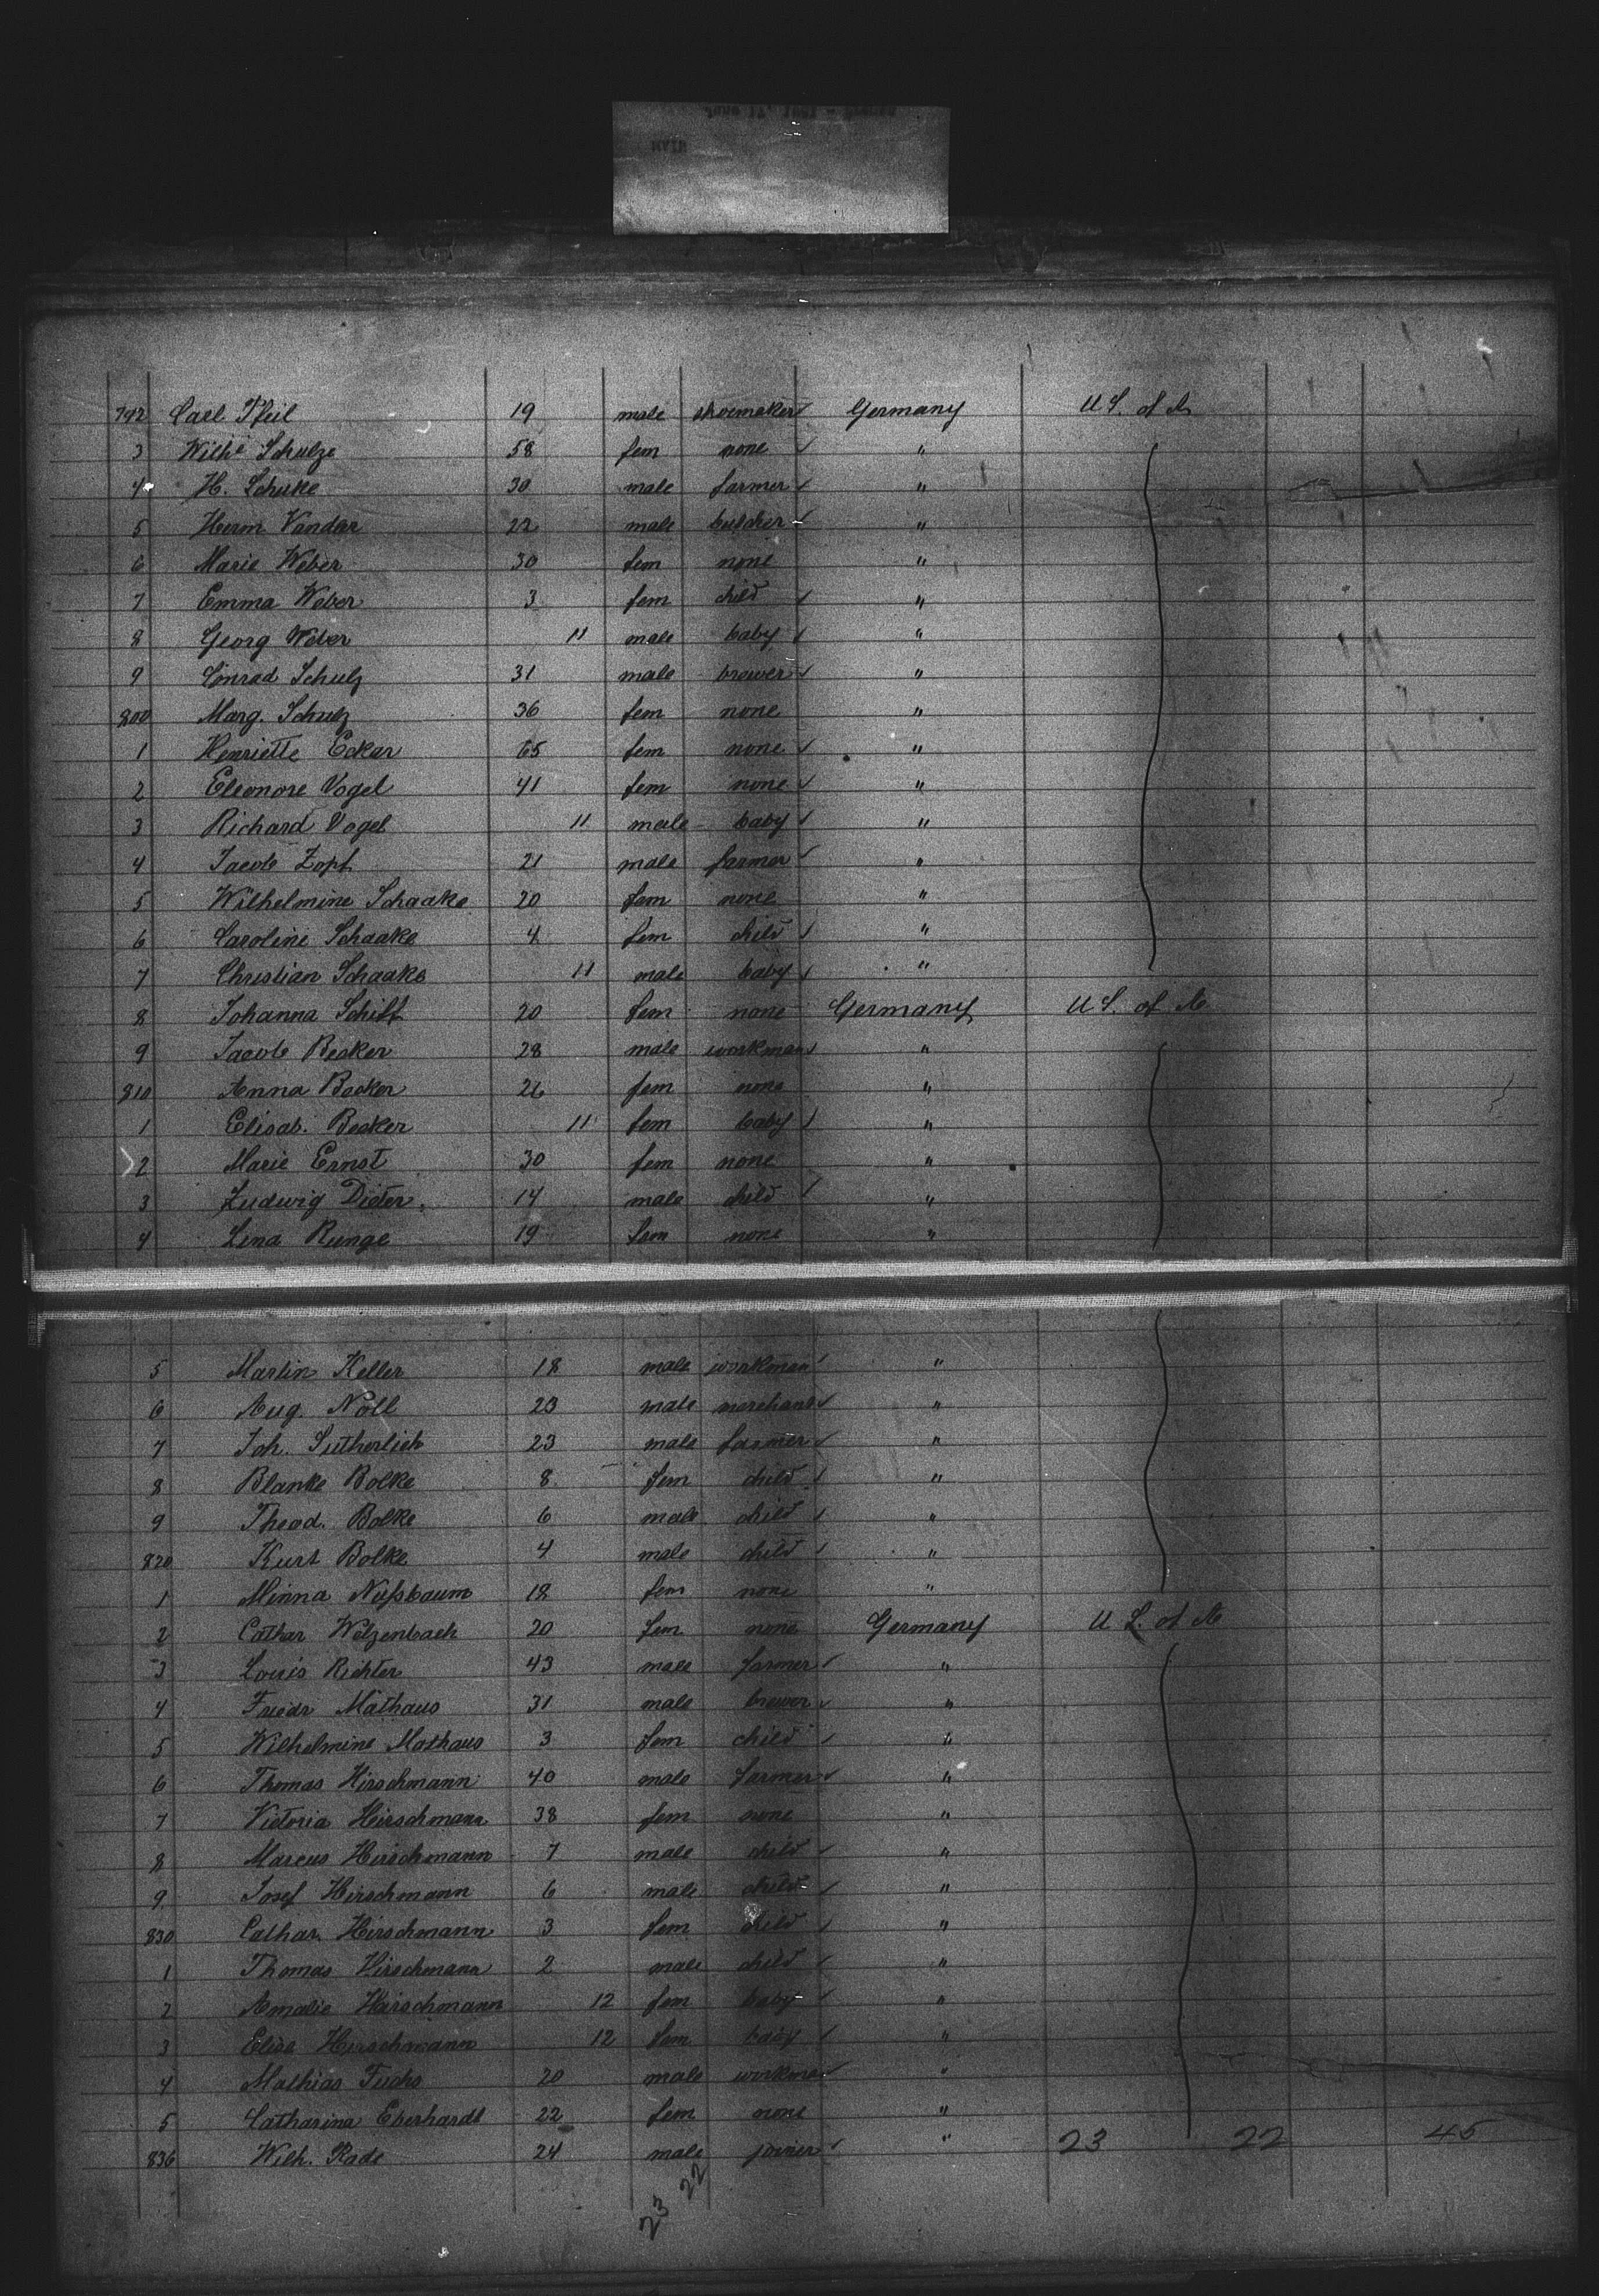 792 Carl Pfeil 19 male shoemaker Germany U.S. of A.
3 Wilhe Schulze 58 fem none "
4 H. Schuke 30 male farmer "
5 Herm Vander 22 male butcher "
6 Marie Weber 30 fem none "
7 Emma Weber 3 fem child "
8 Georg Weber 11 male baby "
9 Conrad Schulz 31 male brewer "
800 Marg. Schulz 36 fem none "
1 Henriette Ecker 65 fem none "
2 Eleonore Vogel 41 fem none "
3 Richard Vogel 11 male baby "
4 Jacob Zopf 21 male farmer "
5 Wilhelmine Schaake 20 fem none "
6 Caroline Schaake 4 fem child "
7 Christian Schaake 11 male baby "
8 Johanna Schiff 20 fem none Germany U.S. of A.
9 Jacob Becker 28 male workman "
810 Anna Becker 26 fem none "
1 Elisab. Becker 11 fem baby "
2 Marie Ernst 30 fem none "
3 Ludwig Dieter 14 male child "
4 Lina Runge 19 fem none "
5 Martin Keller 18 male workman "
6 Aug. Noll 23 male merchant "
7 Joh. Sutherlich 23 male farmer "
8 Blanke Bolke 8 fem child "
9 Theod. Bolke 6 male child "
820 Kurt Bolke 4 male child "
1 Minna Nußbaum 18 fem none "
2 Cathar Wolzenbach 20 fem none Germany U.S. of A
3 Louis Richter 43 male farmer "
4 Friedr Mathaus 31 male brewer "
5 Wilhelmine Mathaus 3 fem child "
6 Thomas Hirschmann 40 male farmer "
7 Victoria Hirschmann 38 fem none "
8 Marcus Hirschmann 7 male child "
9 Josef Hirschmann 6 male child "
830 Cathar. Hirschmann 3 fem child "
1 Thomas Hirschmann 2 male child "
2 Amalie Hirschmann 12 fem baby "
3 Elise Hirschmann 12 fem baby "
4 Mathias Fuchs 20 male workman "
5 Catharina Eberhardt 22 fem none "
836 Wilh. Rade 24 male joiner " 23 22 45
23 22